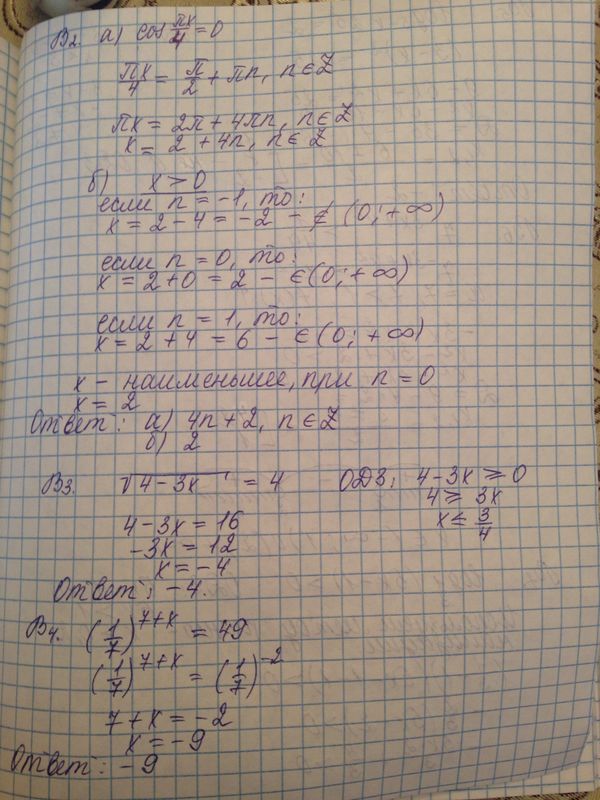 В2. а) cos πx/4 = 0
πx/4 = π/2 + πn, n ∈ Z
πx = 2π + 4πn, n ∈ Z
x = 2 + 4n, n ∈ Z
б) x > 0
если n = -1, то:
x = 2 - 4 = -2 - ∉ (0; +∞)
если n = 0, то:
x = 2 + 0 = 2 - ∈ (0; +∞)
если n = 1, то:
x = 2 + 4 = 6 - ∈ (0; +∞)
x - наименьшее, при n = 0
x = 2
Ответ: а) 4n + 2, n ∈ Z
б) 2
В3. √4 - 3x = 4 ОДЗ: 4 - 3x ≥ 0
4 ≥ 3x
x ≤ 3/4
4 - 3x = 16
-3x = 12
x = -4
Ответ: -4.
В4. (1/7)^7+x = 49
(1/7)^7+x = (1/7)^-2
7 + x = -2
x = -9
Ответ: -9